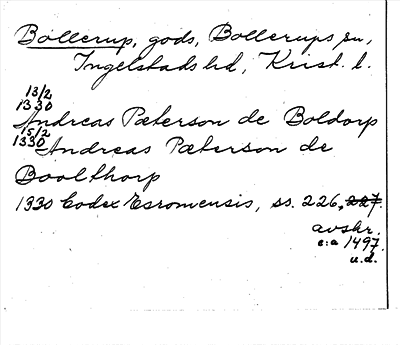 Bollerup, gods, Bollerups sn,
Ingelstads hd, Krist. l.
13/2
1330
Andreas Pæterson de Boldorp
15/2
1330 Andreas Pæterson de
Boolthorp
1330 Codex Esromensis, ss. 226, 227.
avskr.
c:a 1497.
u.d.